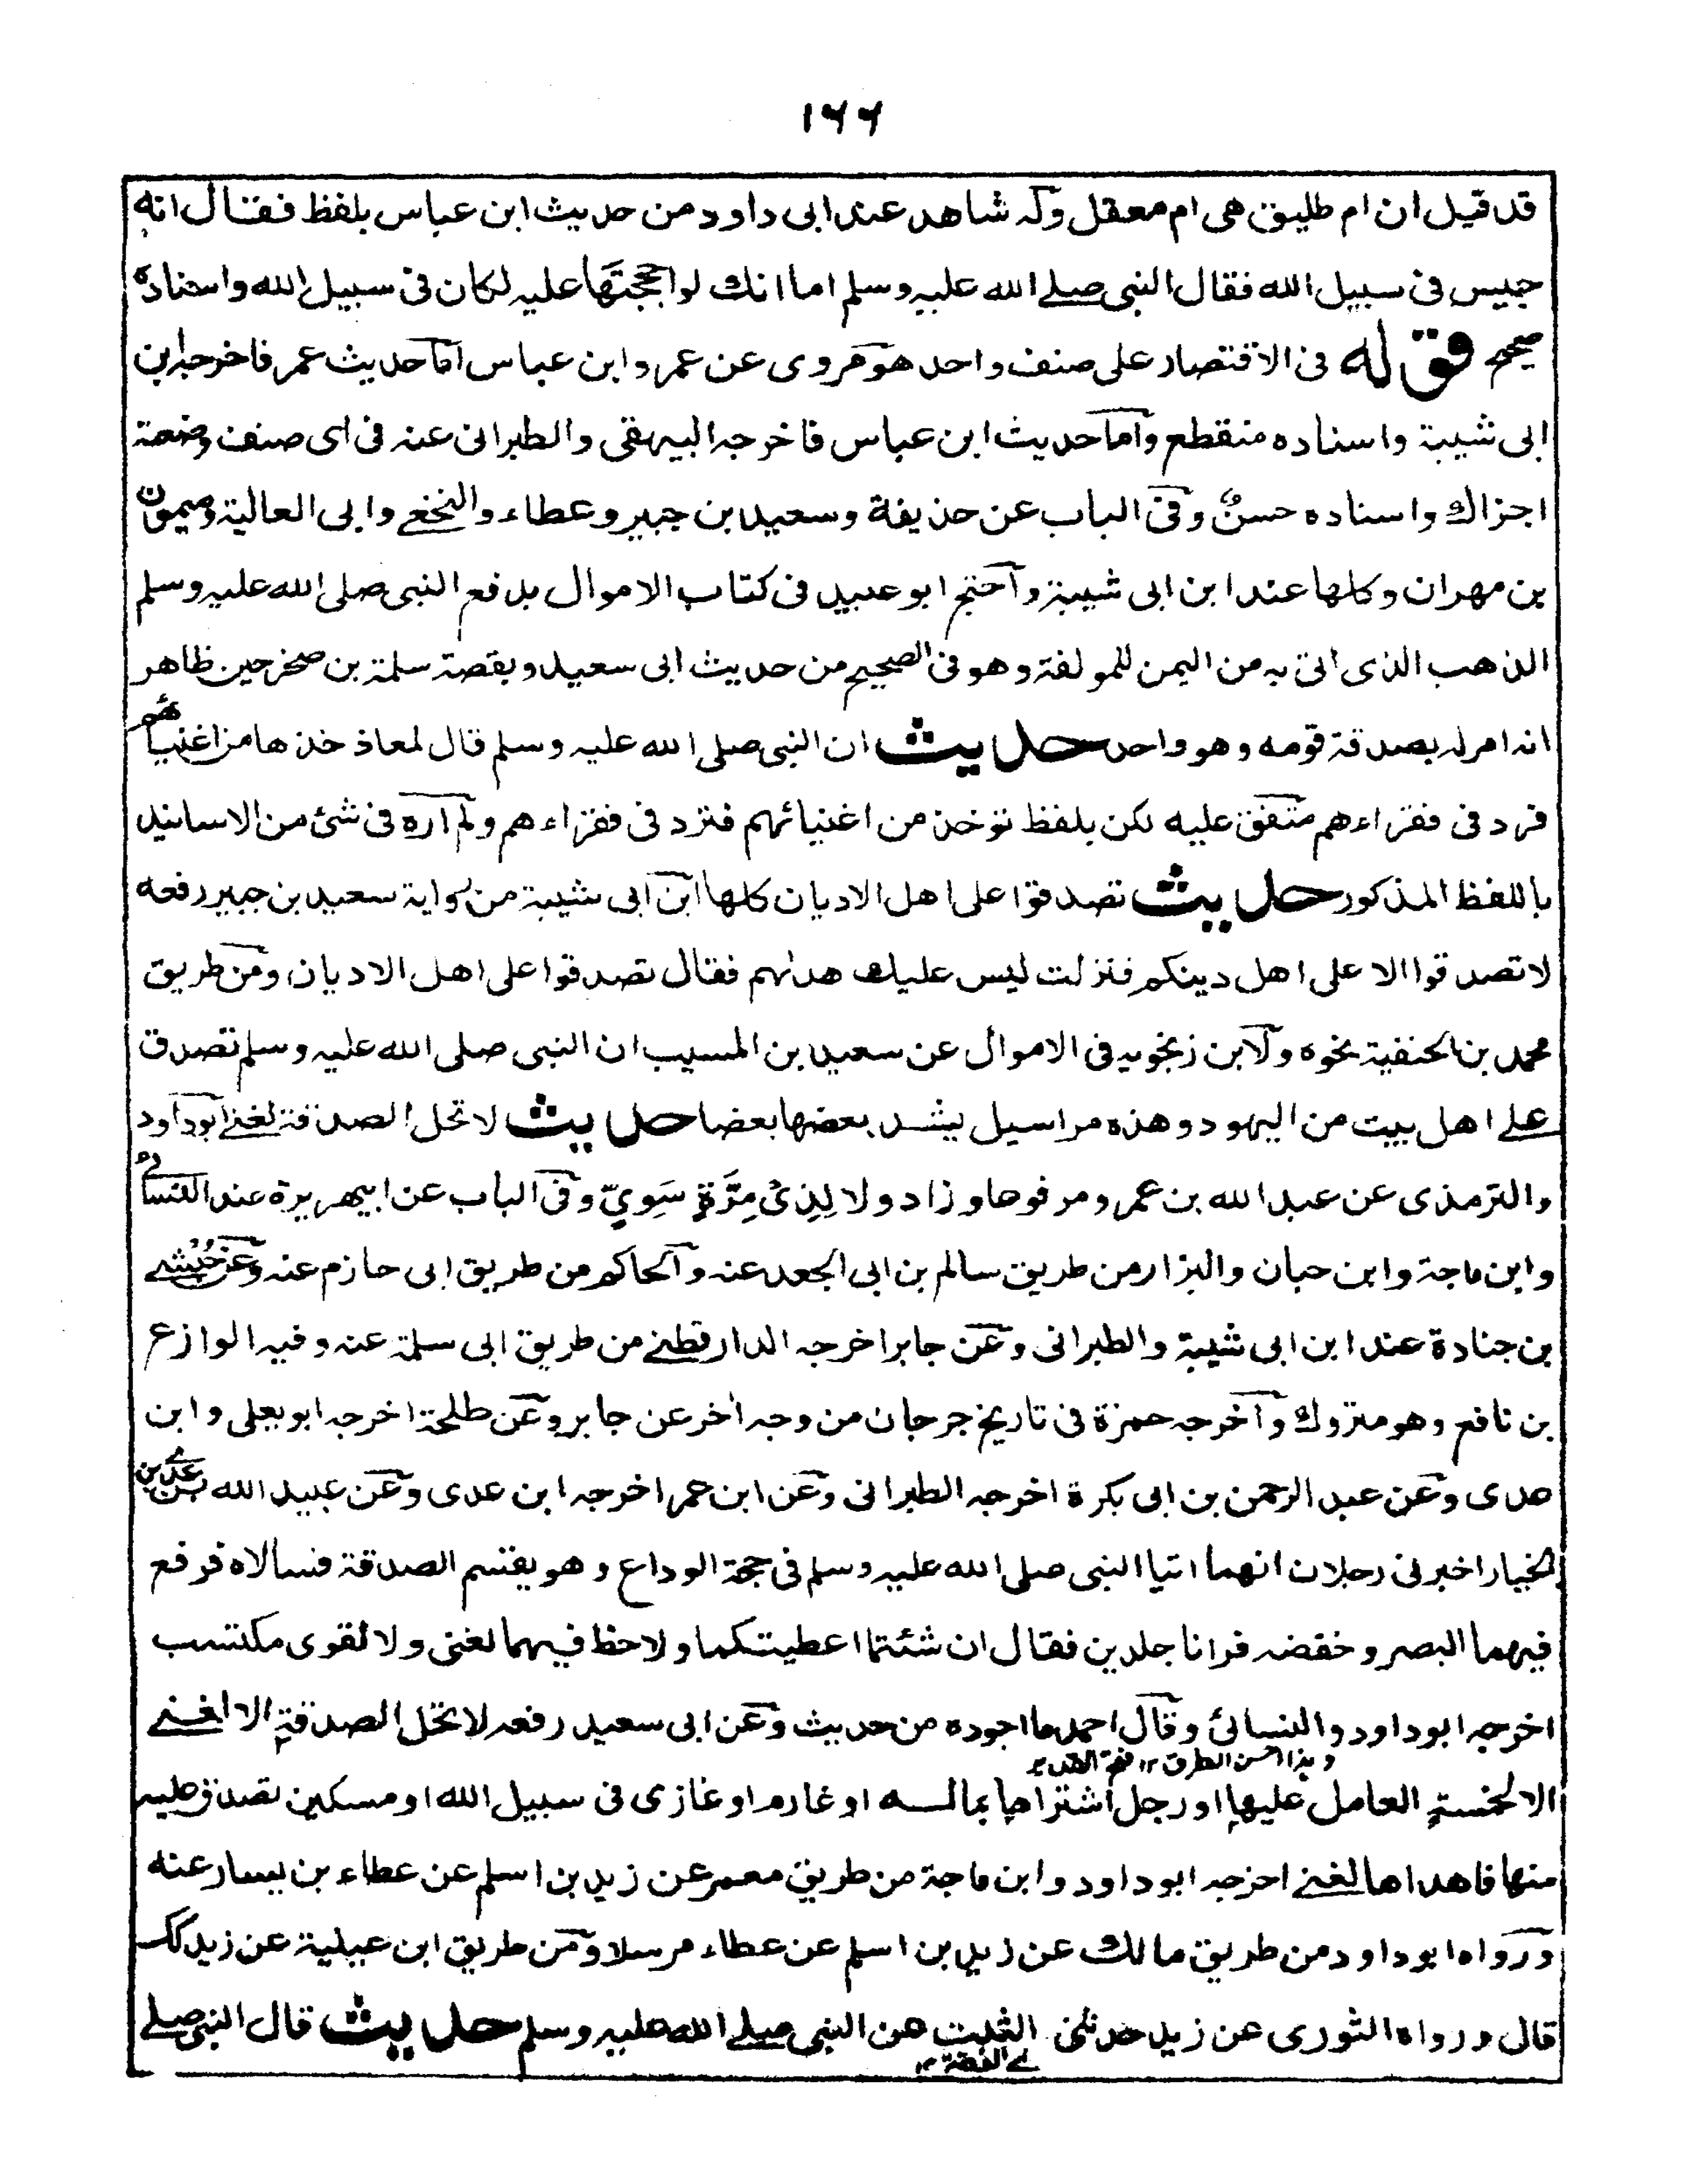 ١٦٦
قد قيل ان ام طليق هى ام معقل وله شاهد عند ابى داود من حديث ابن عباس بلفظ فقال انه
حبيس فى سبيل الله فقال النبى صلے الله عليه وسلم اما انك لو احججتها عليه لكان فى سبيل الله واسناده
صحيح قوله فى الاقتصار على صنف واحد هو مروى عن عمر وابن عباس اما حديث عمر فاخرجه ابن
ابى شيبة واسناده منقطع واما حديث ابن عباس فاخرجه البيهقى والطبرانى عنه فى اى صنف وضعته
اجزاك واسناده حسنٌ وفى الباب عن حذيفة وسعيد بن جبير وعطاء والنخعے وابى العالية وميمون
بن مهران وكلها عند ابن ابى شيبة واحتج ابو عبيد فى كتاب الاموال بدفع النبى صلى الله عليه وسلم
الذهب الذى اتى به من اليمن للمولفة وهو فى الصحيح من حديث ابى سعيد وبقصة سلمة بن صخر حين ظاهر
انه امر له بصدقة قومه وهو واحد حديث ان النبى صلى الله عليه وسلم قال لمعاذ خذها من اغنيائهم
فرد فى فقراءهم متفق عليه لكن بلفظ توخذ من اغنيائهم فترد فى فقراءهم ولم اره فى شئ من الاسانيد
باللفظ المذكور حديث تصدقوا على اهل الاديان كلها ابن ابى شيبة من رواية سعيد بن جبير رفعه
لا تصدقوا الا على اهل دينكم فنزلت ليس عليك هداهم فقال تصدقوا على اهل الاديان ومن طريق
محمد بن الحنفية نحوه ولابن زنجويه فى الاموال عن سعيد بن المسيب ان النبى صلى الله عليه وسلم تصدق
علے اهل بيت من اليهود وهذه مراسيل يشد بعضها بعضا حديث لا تحل الصدقة لغنے ابو داود
والترمذى عن عبد الله بن عمرو مرفوعا وزاد ولا لِذِىْ مِرَّةٍ سَوِيٍّ وفى الباب عن ابيهريرة عند النسائے
وابن ماجة وابن حبان والبزار من طريق سالم بن ابى الجعد عنه والحاكم من طريق ابى حازم عنه وعن حُبْشے
بن جنادة عند ابن ابى شيبة والطبرانى وعن جابر اخرجه الدارقطنے من طريق ابى سلمة عنه وفيه الوازع
بن نافع وهو متروك واخرجه حمزة فى تاريخ جرجان من وجه اخر عن جابر وعن طلحة اخرجه ابو يعلى وابن
عدى وعن عبد الرحمن بن ابى بكرة اخرجه الطبرانى وعن ابن عمر اخرجه ابن عدى وعن عبيد الله بن عدے بن
الخيار اخبرنى رجلان انهما اتيا النبى صلى الله عليه وسلم فى حجة الوداع وهو يقسم الصدقة فسالاه فرفع
فيهما البصر وخفضه فرانا جلدين فقال ان شئتما اعطيتكما ولا حظ فيهما لغنى ولا لقوى مكتسب
اخرجه ابو داود والنسائى وقال احمد ما اجوده من حديث وعن ابى سعيد رفعه لا تحل الصدقة الا لغنے
و هذا احسن الطرق ١٢ فتح القدير
الا لخمسة العامل عليها او رجل اشتراها بماله او غارم او غازى فى سبيل الله او مسكين تصدق عليه
منها فاهداها لغنے اخرجه ابو داود وابن ماجة من طريق معمر عن زيد بن اسلم عن عطاء بن يسار عنه
ورواه ابو داود من طريق مالك عن زيد بن اسلم عن عطاء مرسلا ومن طريق ابن عيينة عن زيد كك
قال ورواه الثورى عن زيد حدثنى الثبت عن النبى صلے الله عليه وسلم حديث قال النبى صلے
اے الثقة ١٢